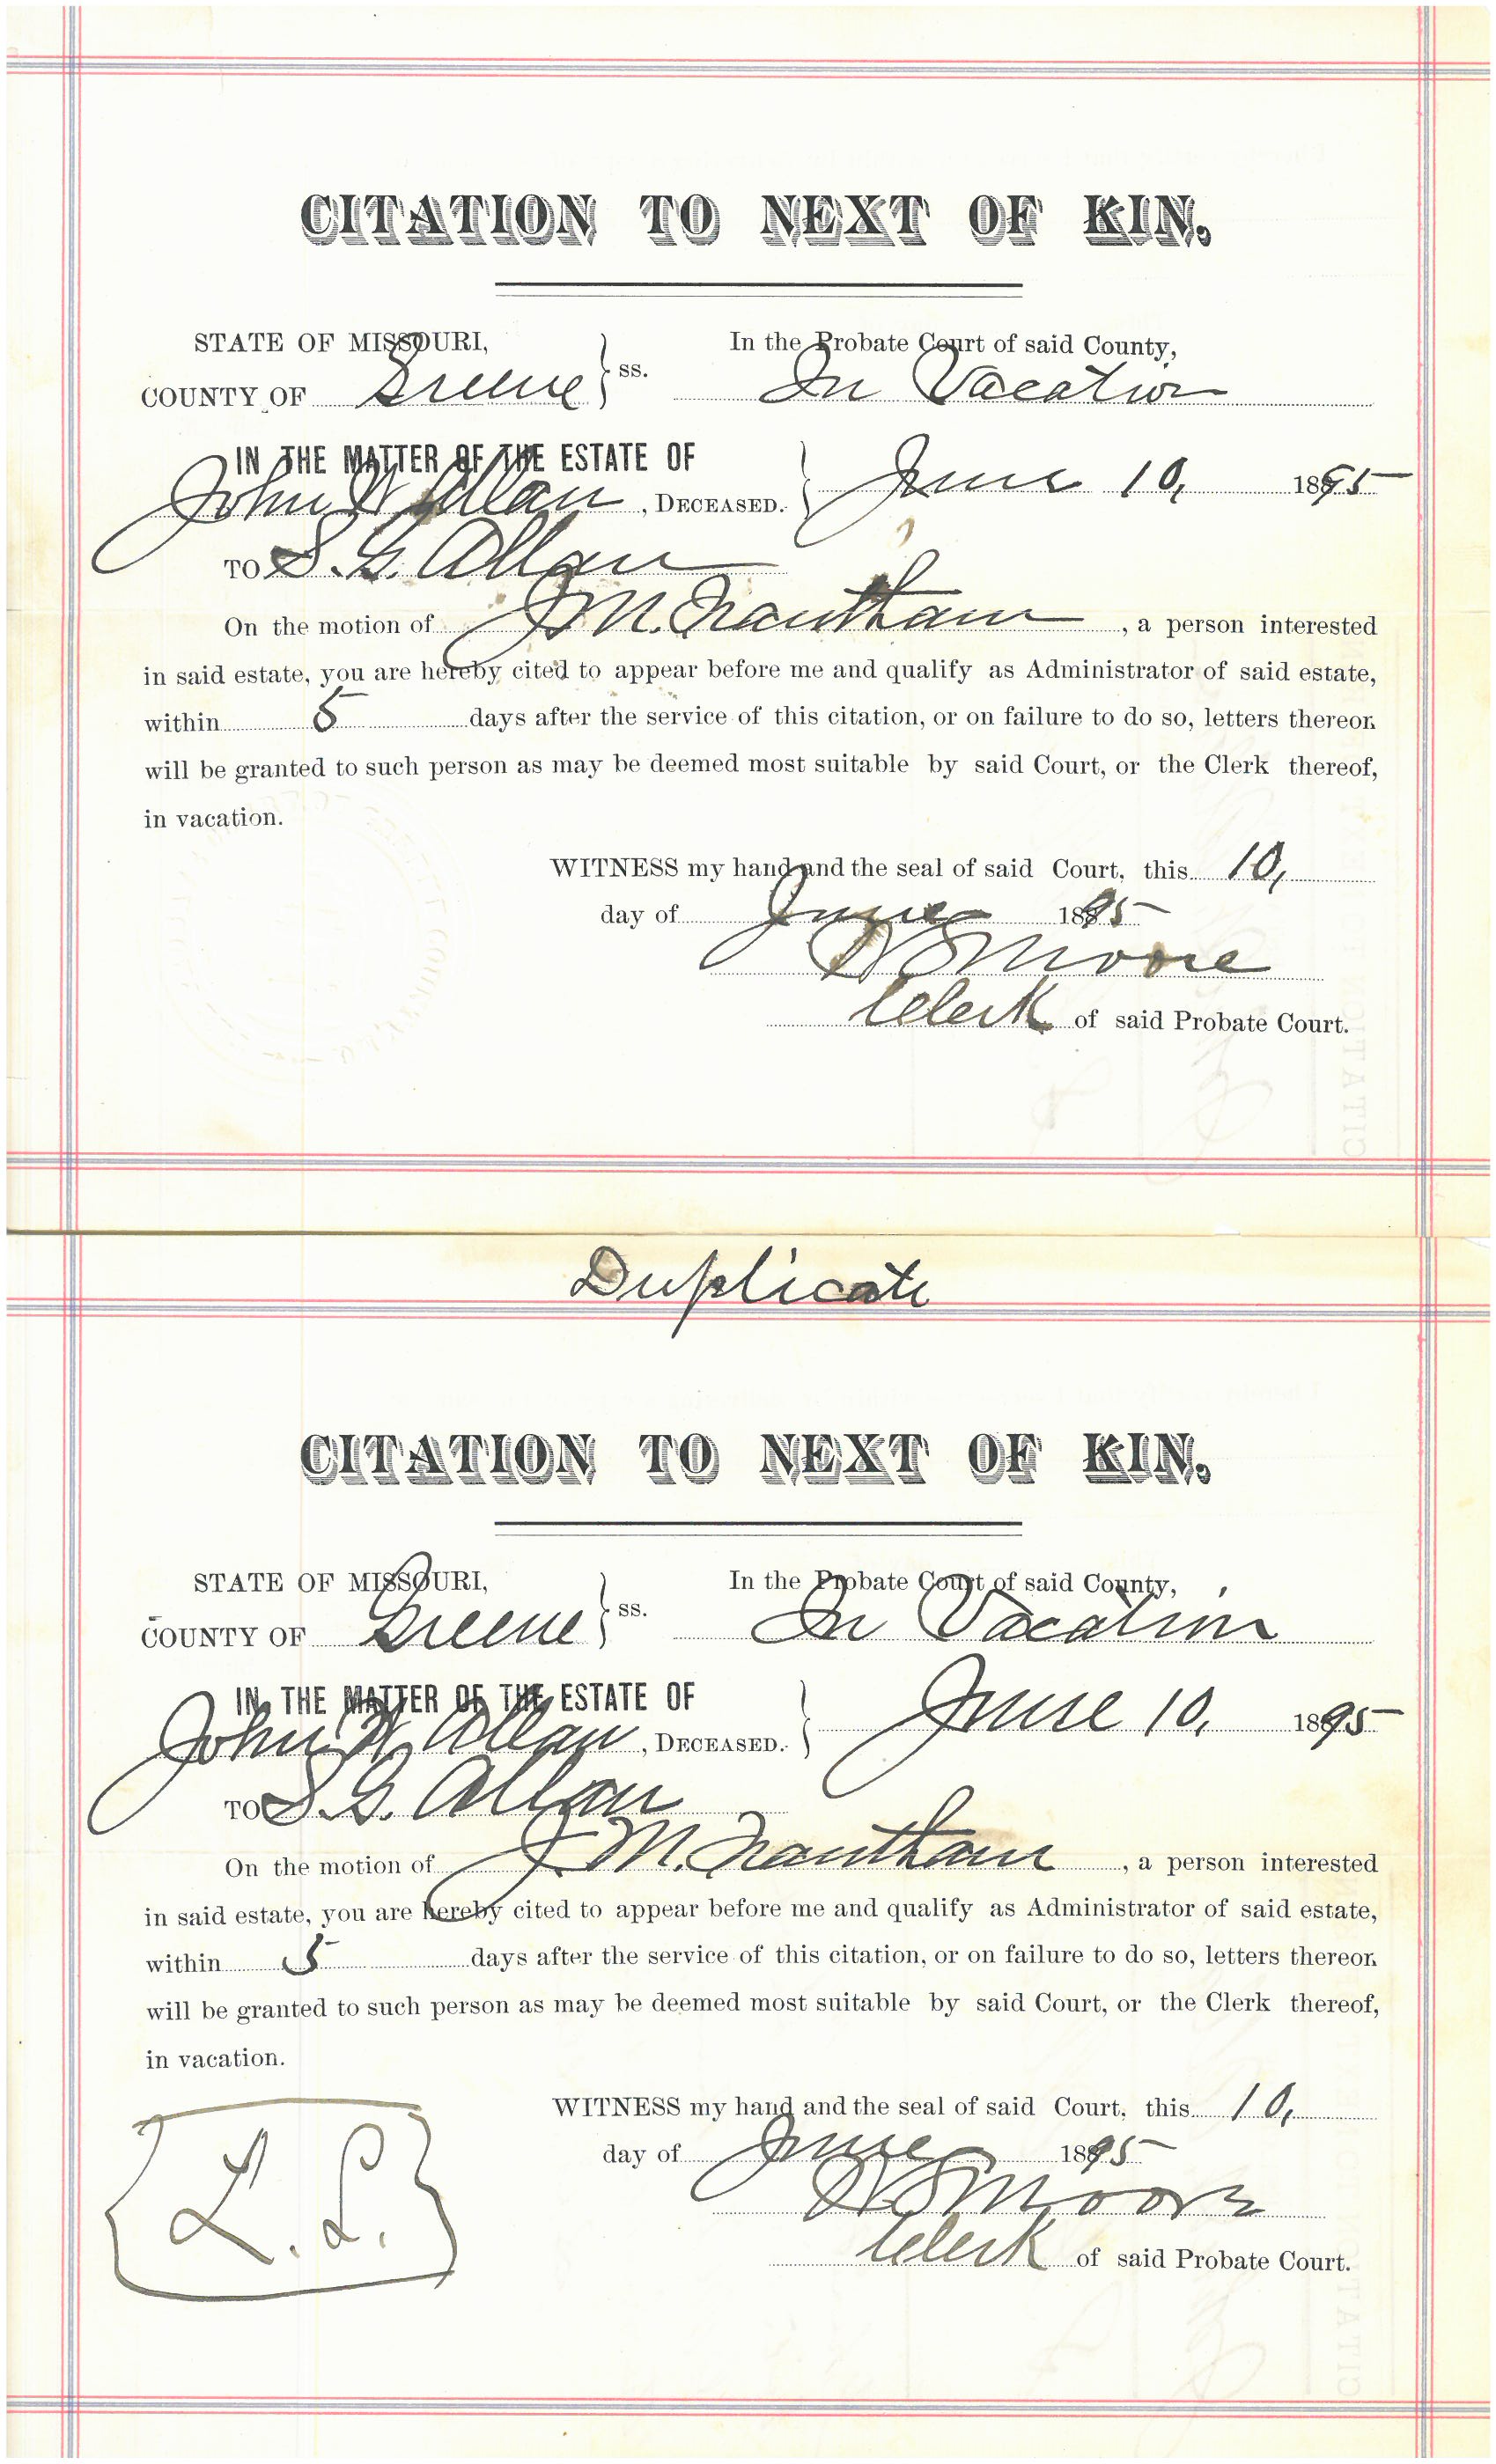 CITATION TO NEXT OF KIN.
STATE OF MISSOURI,
COUNTY OF Greene } ss.
In the Probate Court of said County,
In Vacation
IN THE MATTER OF THE ESTATE OF
John W Allan, DECEASED. } June 10, 1895
TO S. G. Allan
On the motion of J M. Trantham, a person interested
in said estate, you are hereby cited to appear before me and qualify as Administrator of said estate,
within 5 days after the service of this citation, or on failure to do so, letters thereon
will be granted to such person as may be deemed most suitable by said Court, or the Clerk thereof,
in vacation.
WITNESS my hand and the seal of said Court, this 10,
day of June 1895
Moore
Clerk of said Probate Court.
Duplicate
CITATION TO NEXT OF KIN.
STATE OF MISSOURI,
COUNTY OF Greene } ss.
In the Probate Court of said County,
In Vacation
IN THE MATTER OF THE ESTATE OF
John W Allan, DECEASED. } June 10, 1895
TO S. G. Allan
On the motion of J M. Trantham, a person interested
in said estate, you are hereby cited to appear before me and qualify as Administrator of said estate,
within 5 days after the service of this citation, or on failure to do so, letters thereon
will be granted to such person as may be deemed most suitable by said Court, or the Clerk thereof,
in vacation.
WITNESS my hand and the seal of said Court, this 10,
day of June 1895
Moore
Clerk of said Probate Court.
{L.S.}